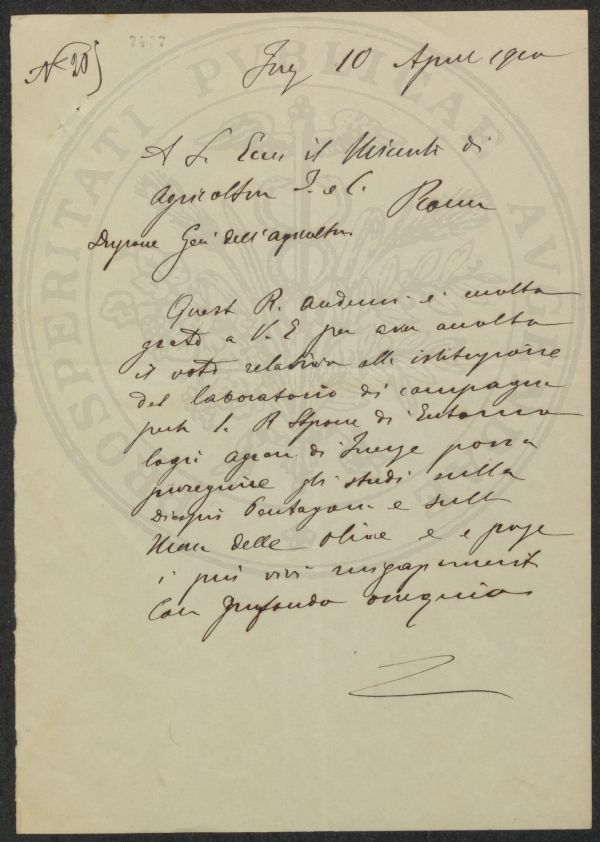 N 20)
7427
Firenze 10 April 1910
A S. Ecc il Ministro di
Agricoltura I. e C. Roma
Direzione Gen dell'agricoltura
Quest R. accademia è molto
grata a V. E per aver accolto
il voto relativo alla istituzione
del laboratorio di campagna
perché la R Stazione di Entomo
logia agraria di Firenze possa
proseguire gli studi sulla
Diaspis Pentagona e sulla
Mosca delle olive e e porge
i più vivi ringraziamenti
Con profondo ossequio
PROSPERITATI PUBLICAE AUGENDAE